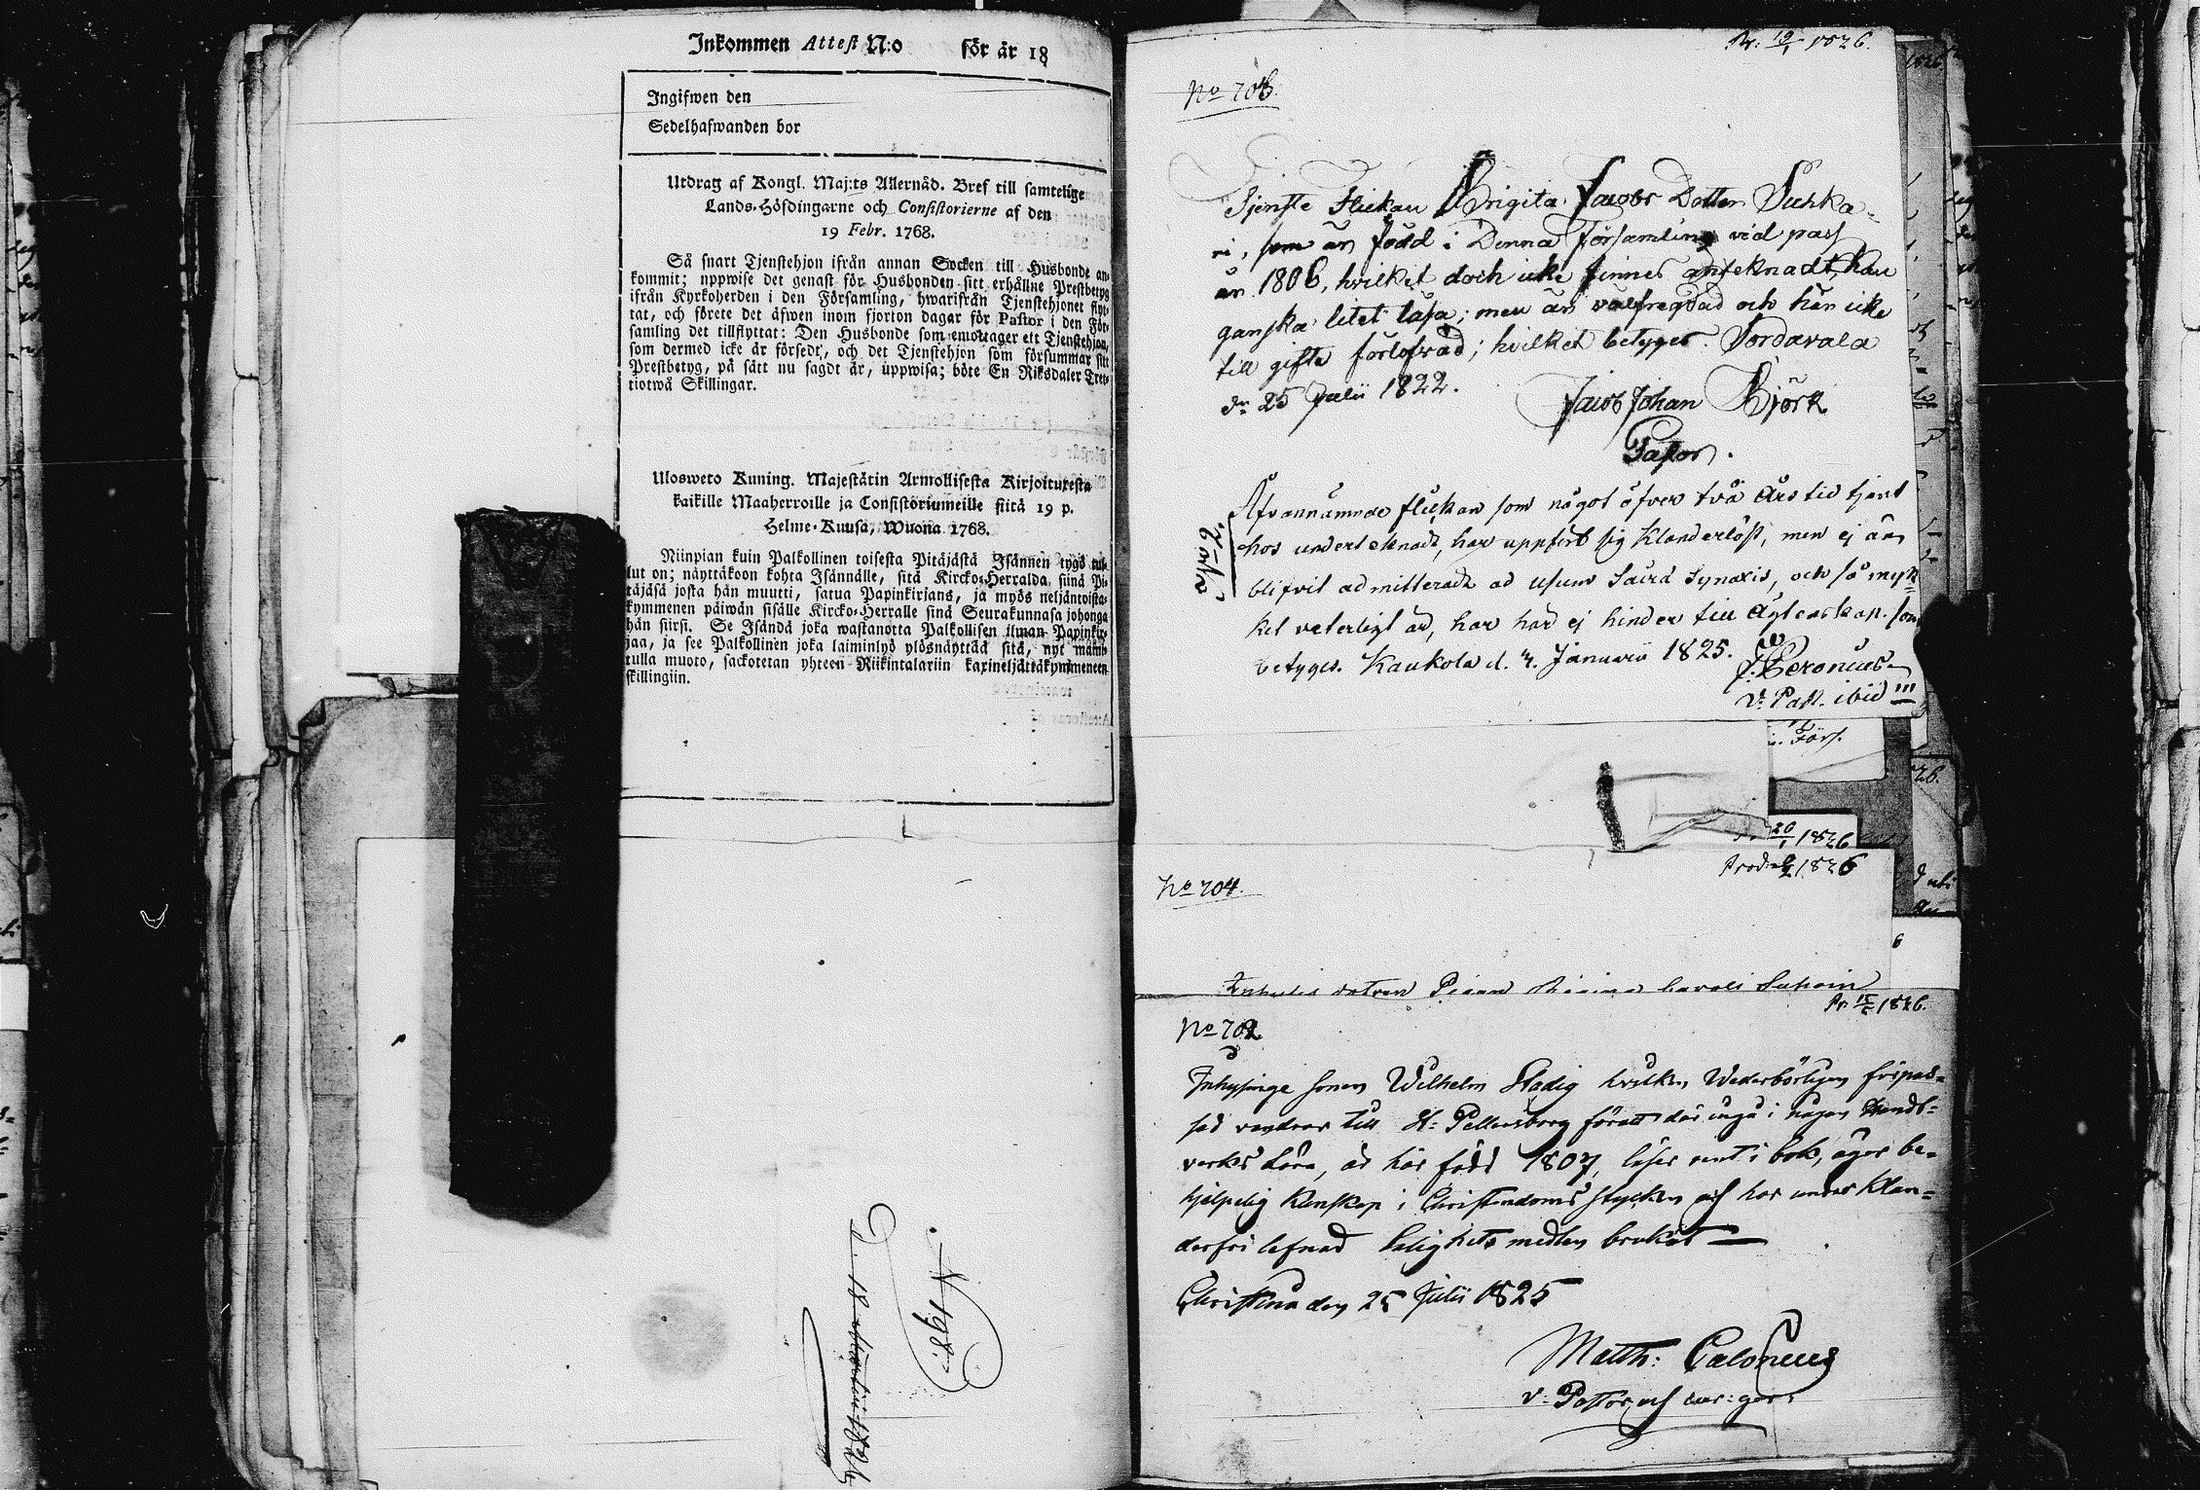 Inkommen Attest N:o för år 18
Ingifwen den
Sedelhafwanden bor
Utdrag af Kongl. Maj:ts Allernåd. Bref till samtelige
Lands-Höfdingarne och Consistorierne af den
19 Febr. 1768.
Så snart Tjenstehjon ifrån annan Socken till Husbonde an-
kommit; uppwise det genast för Husbonden sitt erhållne Prestbetyg
ifrån Kyrkoherden i den Församling, hwarifrån Tjenstehjonet flyt-
tat, och förete det äfwen inom fjorton dagar för Pastor i den För-
samling det tillflyttat: Den Husbonde som emottager ett Tjenstehjon,
som dermed icke är försedt, och det Tjenstehjon som försummar sitt
Prestbetyg, på sätt nu sagdt är, uppwisa; böte En Riksdaler Tret-
tiotwå Skillingar.
Ulosweto Kuning. Majestätin Armollisesta Kirjoituxesta
kaikille Maaherroille ja Consistoriumeille siitä 19 p.
Helme-Kuusa, Wuona 1768.
Niinpian kuin Palkollinen toisesta Pitäjästä Isännen tygö tul-
lut on; näyttäkoon kohta Isännälle, sitä Kircko-Herralda siinä Pi-
täjäsä josta hän muutti, saatua Papinkirjans, ja myös neljäntoista-
kymmenen päiwän sisälle Kircko-Herralle siinä Seurakunnasa johonga
hän siirsi. Se Isändä joka wastanotta Palkollisen ilman Papinkir-
jaa, ja see Palkollinen joka laiminlyö ylösnäyttää sitä, nyt maini-
tulla muoto, sackotetan yhteen Riikintalariin kaxineljättäkymmeneen
skillingiin.
N 198
Pr: 19/1 1826.
No 706.
Tjenste Flickan Brigita Jacobs Dotter Suhka-
ri, som är född i Denna Församling vid pass
år 1806, hvilket doch icke finnes anteknadt, kan
ganska litet läsa; men är välfregdad och här icke
till gifte förlofvad; hvilket betyges. Sordavala
dn 25 Julii 1822.
Jacob Johan Björk
Pastor.
Åfvannämnde flickan som något öfver två års tid tjent
hos undertecknad, har uppfört sig klanderlöst, men ej än
blifvit admitterade ad usum Sacra Synaxis, och så myc-
ket veterligt är, har här ej hinder till ägtenskap. som
betyges. Kaukola d. 7. Januarii 1825.
V: Past. ibid
Förs.
20/1 1826
Prod: 1826
No 704.
Pr: 1826.
No 702
Inhysinge sonen Wilhelm Stadig hvilken Wederbörligen förpas-
sad vandrar till St: Pettersborg föratt där ingå i någon Handt-
verks Lära, är här född 1807, läser rent i bok, äger be-
hjelpelig Kunskap i Christendoms stycken och har under klan-
derfri lefnad Salighets medlen brukat
Christina den 25 Julii 1825
Matth: Calonius
v. Pastor